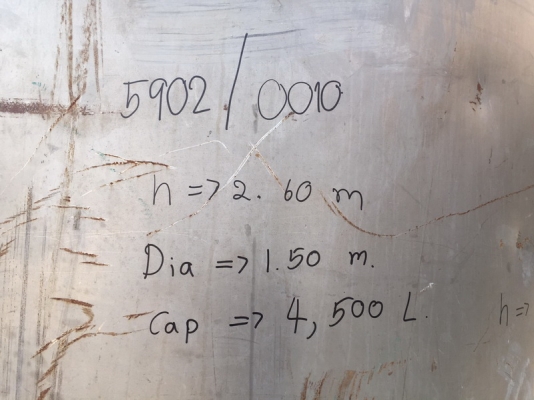 5902/0010
h => 2.60 m
Dia => 1.50 m.
Cap => 4,500 L.
h =>